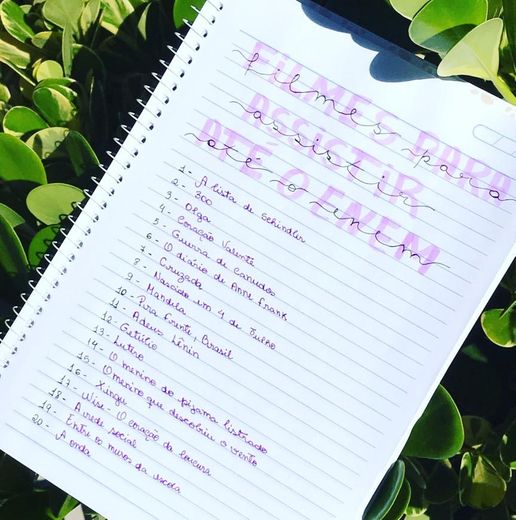 FILMES PARA
filmes para
ASSISTIR
assistir
ATÉ O ENEM
até o enem
1- A lista de Schindler
2- 300
3- Olga
4- Coração Valente
5- Guerra de Canudos
6- O diário de Anne Frank
7- Cruzada
8- Nascido em 4 de Julho
9- Mandela
10- Pra frente, Brasil
11- Adeus Lênin
12- Getúlio
13- Lutero
14- O menino do pijama listrado
15- O menino que descobriu o vento
16- Xingu
17- Nise - O coração da loucura
18- A rede social
19- Entre os muros da escola
20- A onda